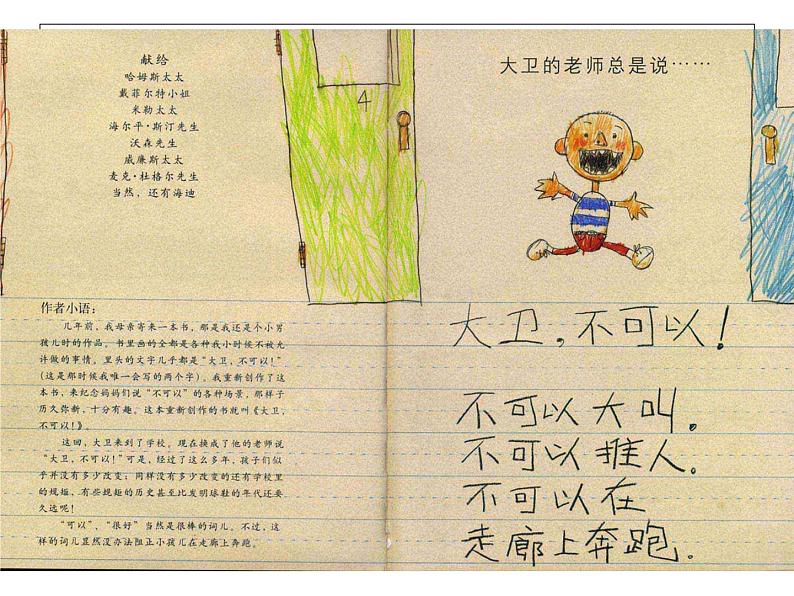 献给
哈姆斯太太
戴菲尔特小姐
米勒太太
海尔平·斯汀先生
沃森先生
威廉斯太太
麦克·杜格尔先生
当然，还有海迪
4
作者小语：
几年前，我母亲寄来一本书，那是我还是个小男
孩儿时的作品。书里画的全都是各种我小时候不被允
许做的事情。里头的文字几乎都是“大卫，不可以！”
（这是那时候我唯一会写的两个字）。我重新创作了这
本书，来纪念妈妈们说“不可以”的各种场景，那样子
历久弥新，十分有趣。这本重新创作的书就叫《大卫，
不可以！》。
这回，大卫来到了学校。现在换成了他的老师说
“大卫，不可以！”可是，经过了这么多年，孩子们似
乎并没有多少改变；同样没有多少改变的还有学校里
的规矩，有些规矩的历史甚至比发明球鞋的年代还要
久远呢！
“可以”、“很好”当然是很棒的词儿。不过，这
样的词儿显然没办法阻止小孩儿在走廊上奔跑。
大卫的老师总是说……
大卫，不可以！
不可以大叫。
不可以推人。
不可以在
走廊上奔跑。